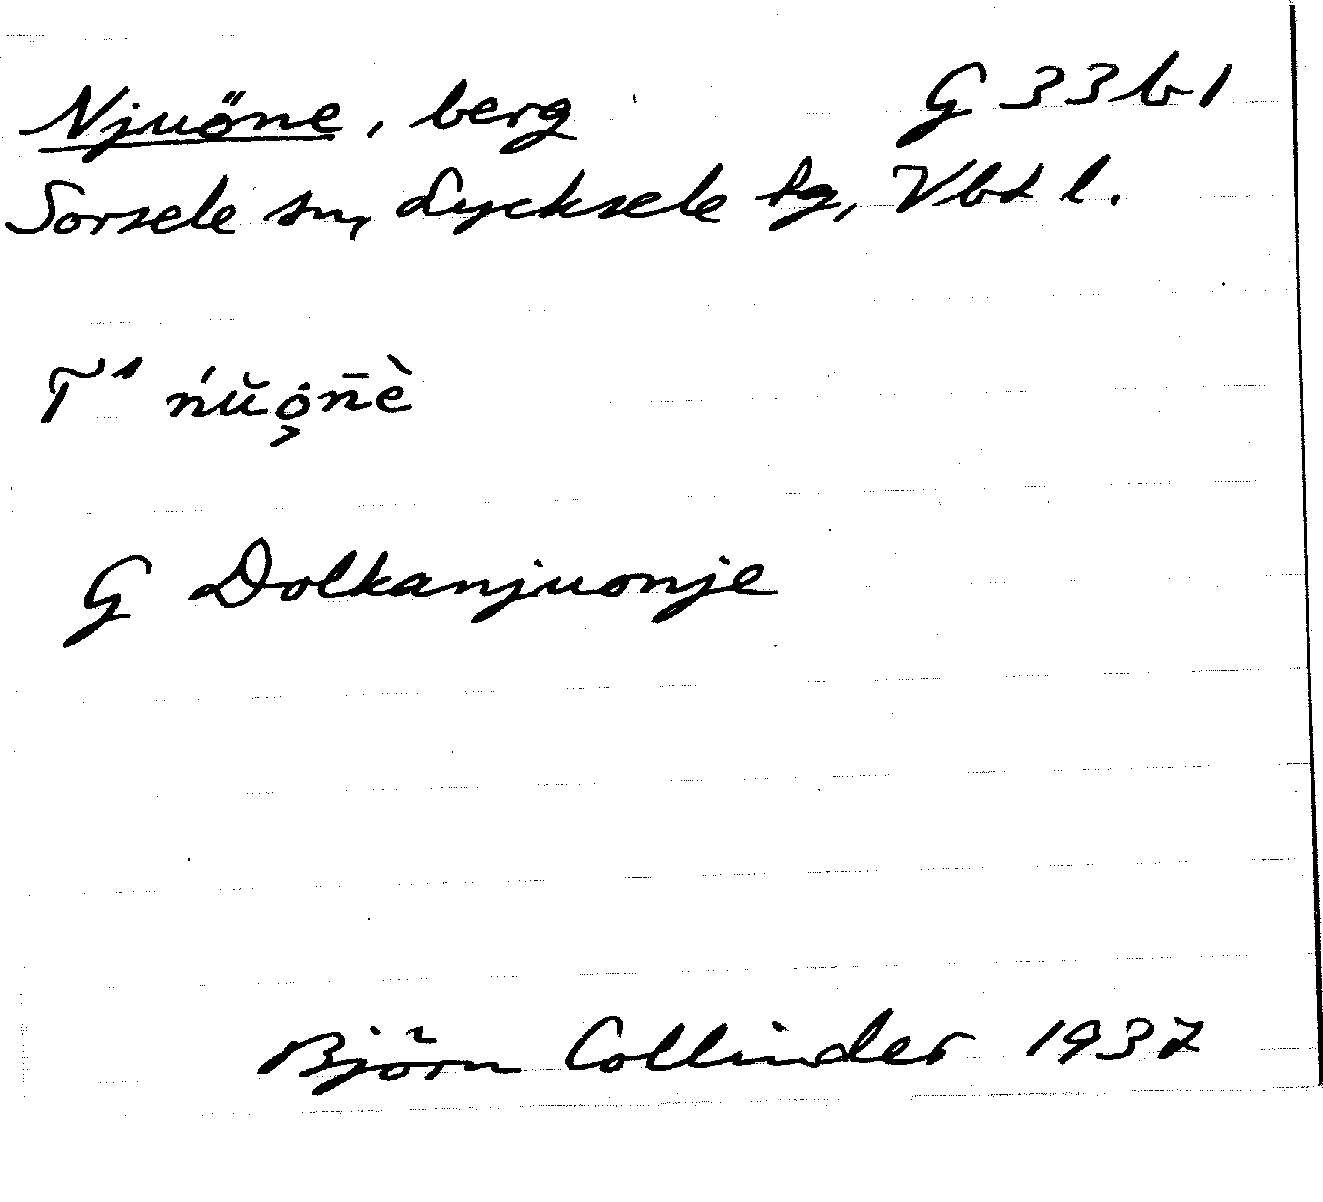 Njuöne, berg G 33 b 1
Sorsele sn, Lycksele lg, Vbt l.
T¹ ńŭȯ̭n̄è
G Dolkanjuonje
Björn Collinder 1937